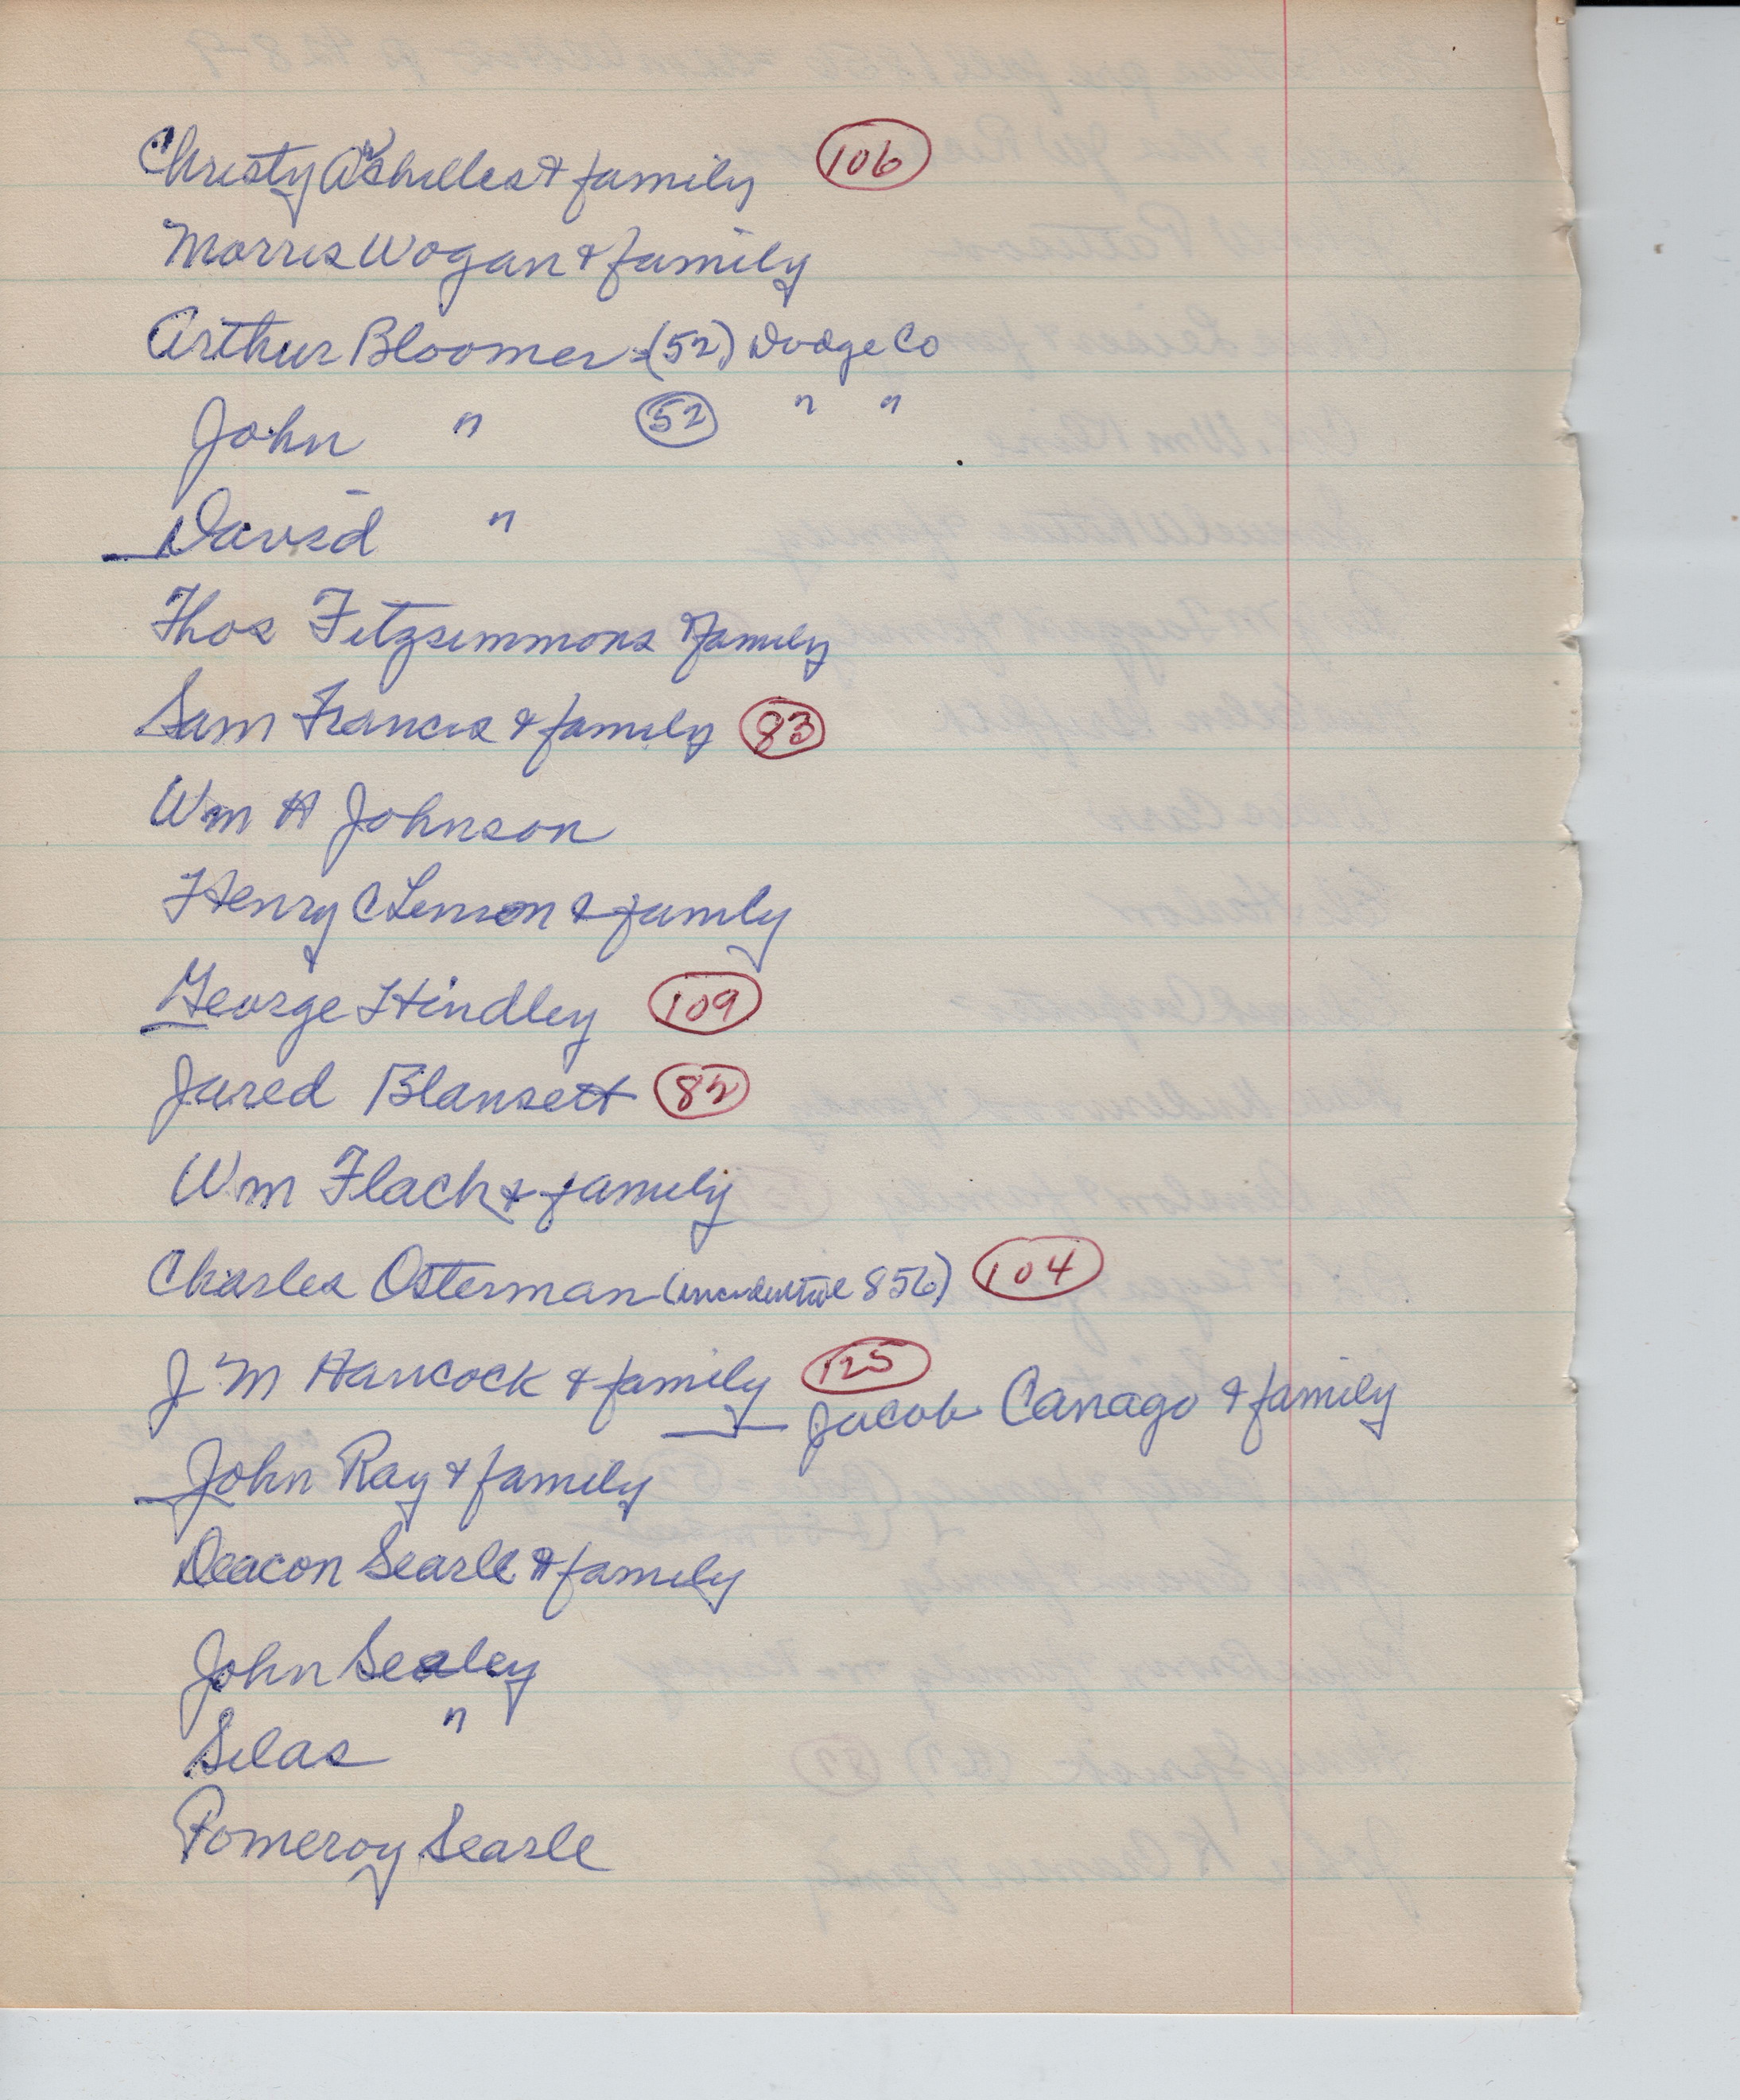 Christy Achilles & family 106
Morris Wogan & family
Arthur Bloomer - (52) Dodge Co
John " 52 " "
David "
Thos Fitzsimmons & family
Sam Francis & family 83
Wm H Johnson
Henry C Lemon & family
George Hindley 109
Jared Blansett 82
Wm Flach & family
Charles Osterman 856) 104
J M Hancock & family 125
Jacob Canago & family
John Ray & family
Deacon Searle & family
John Sealey
Silas "
Pomeroy Searle